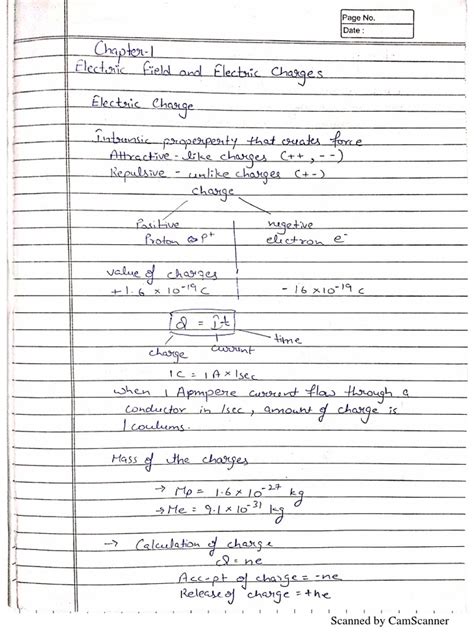 Page No.
Date :
Chapter-1
Electric field and Electric Charges
Electric Charge
Intrinsic properperty that creates force
Attractive - like charges (++, --)
Repulsive - unlike charges (+-)
charge
Positive negetive
Proton P+ electron e-
value of charges
+1.6 x 10-19 C -16 x 10-19 C
Q = It
charge current time
1C = 1A x 1sec
when 1 Apmpere current flow through a
conductor in 1sec, amount of charge is
1 coulums.
Mass of the charges
→ Mp = 1.6 x 10-27 kg
→ Me = 9.1 x 10-31 kg
→ Calculation of charge
Q = ne
Accept of charge = -ne
Release of charge = +ne
Scanned by CamScanner